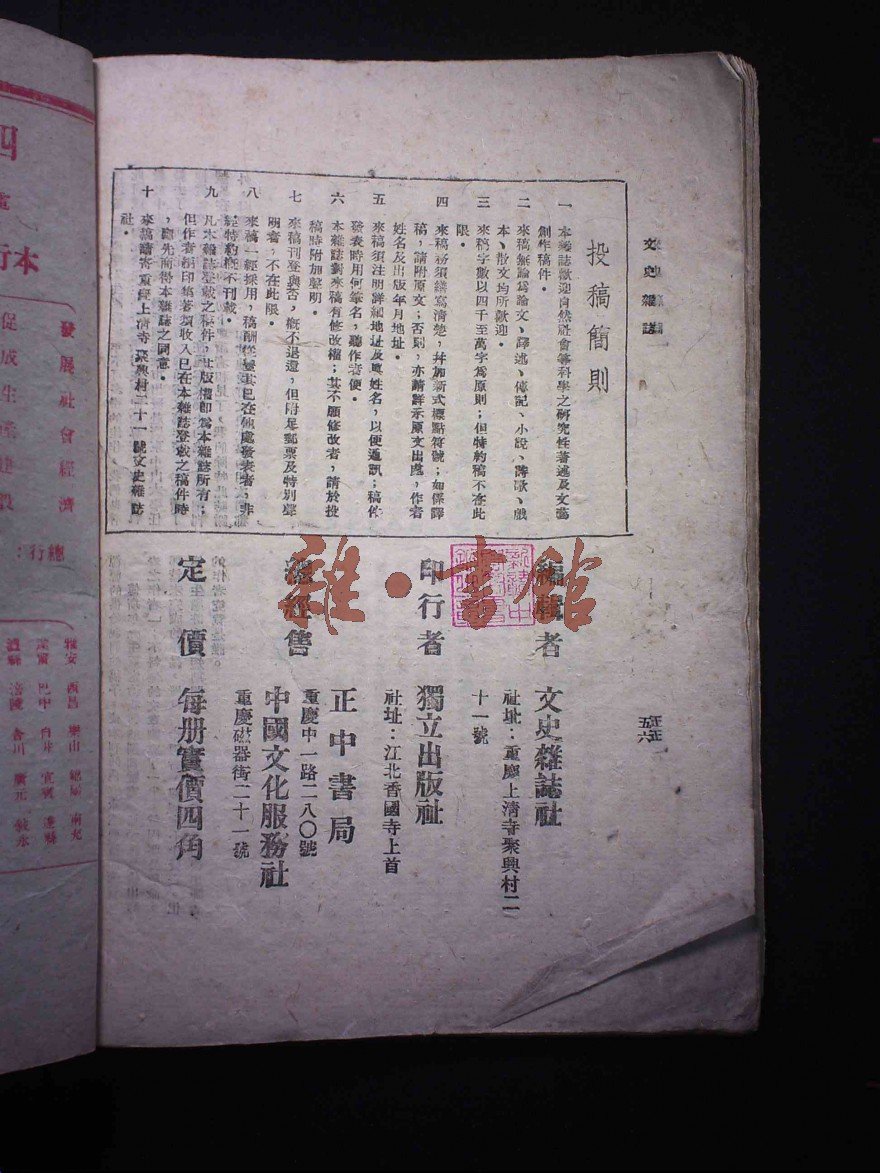 文史雜誌
投稿簡則
一 本雜誌歡迎自然社會等科學之研究性著述及文藝
創作稿件。
二 來稿無論為論文、譯述、傳記、小說、詩歌、戲
本、散文均所歡迎。
三 來稿字數以四千至萬字為原則；但特約稿不在此
限。
四 來稿務須繕寫清楚，幷加新式標點符號；如係譯
稿，請附原文；否則，亦請詳示原文出處，作者
姓名及出版年月地址。
五 來稿須注明詳細地址及真姓名，以便通訊；稿件
發表時用何筆名，聽作者便。
六 本雜誌對來稿有修改權；其不願修改者，請於投
稿時附加聲明。
七 來稿刊登與否，概不退還，但附足郵票及特別聲
明者，不在此限。
八 來稿一經採用，稿酬從優其已在他處發表者，非
經特約概不刊載。
九 凡本雜誌登載之稿件，出版權即為本雜誌所有；
但作者編印集著須收入已在本雜誌登載之稿件時
，應先商得本雜誌之同意。
十 來稿請寄重慶上清寺聚興村二十一號文史雜誌
社。
編輯者 文史雜誌社
社址：重慶上清寺聚興村二
十一號
印行者 獨立出版社
社址：江北香國寺上首
總經售 正中書局
重慶中一路二八〇號
中國文化服務社
重慶磁器街二十一號
定價 每册實價四角
五六
雜·書館
發展社會經濟
促成生產建設
總行：
四
本行